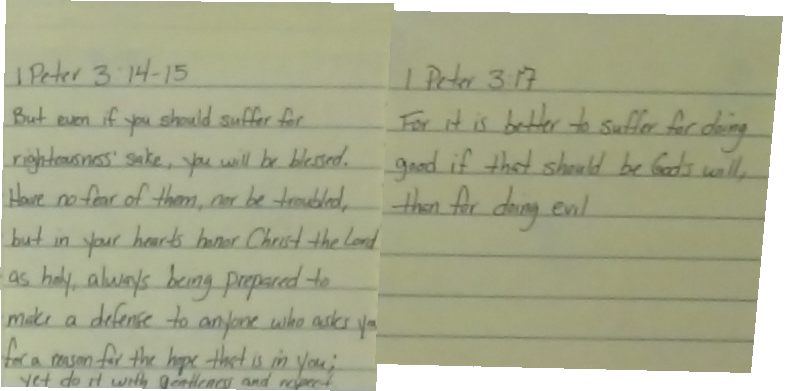 1 Peter 3:14-15
But even if you should suffer for
righteousness' sake, you will be blessed.
Have no fear of them, nor be troubled,
but in your hearts honor Christ the Lord
as holy, always being prepared to
make a defense to anyone who asks you
for a reason for the hope that is in you;
yet do it with gentleness and respect
1 Peter 3:17
For it is better to suffer for doing
good if that should be God's will,
than for doing evil